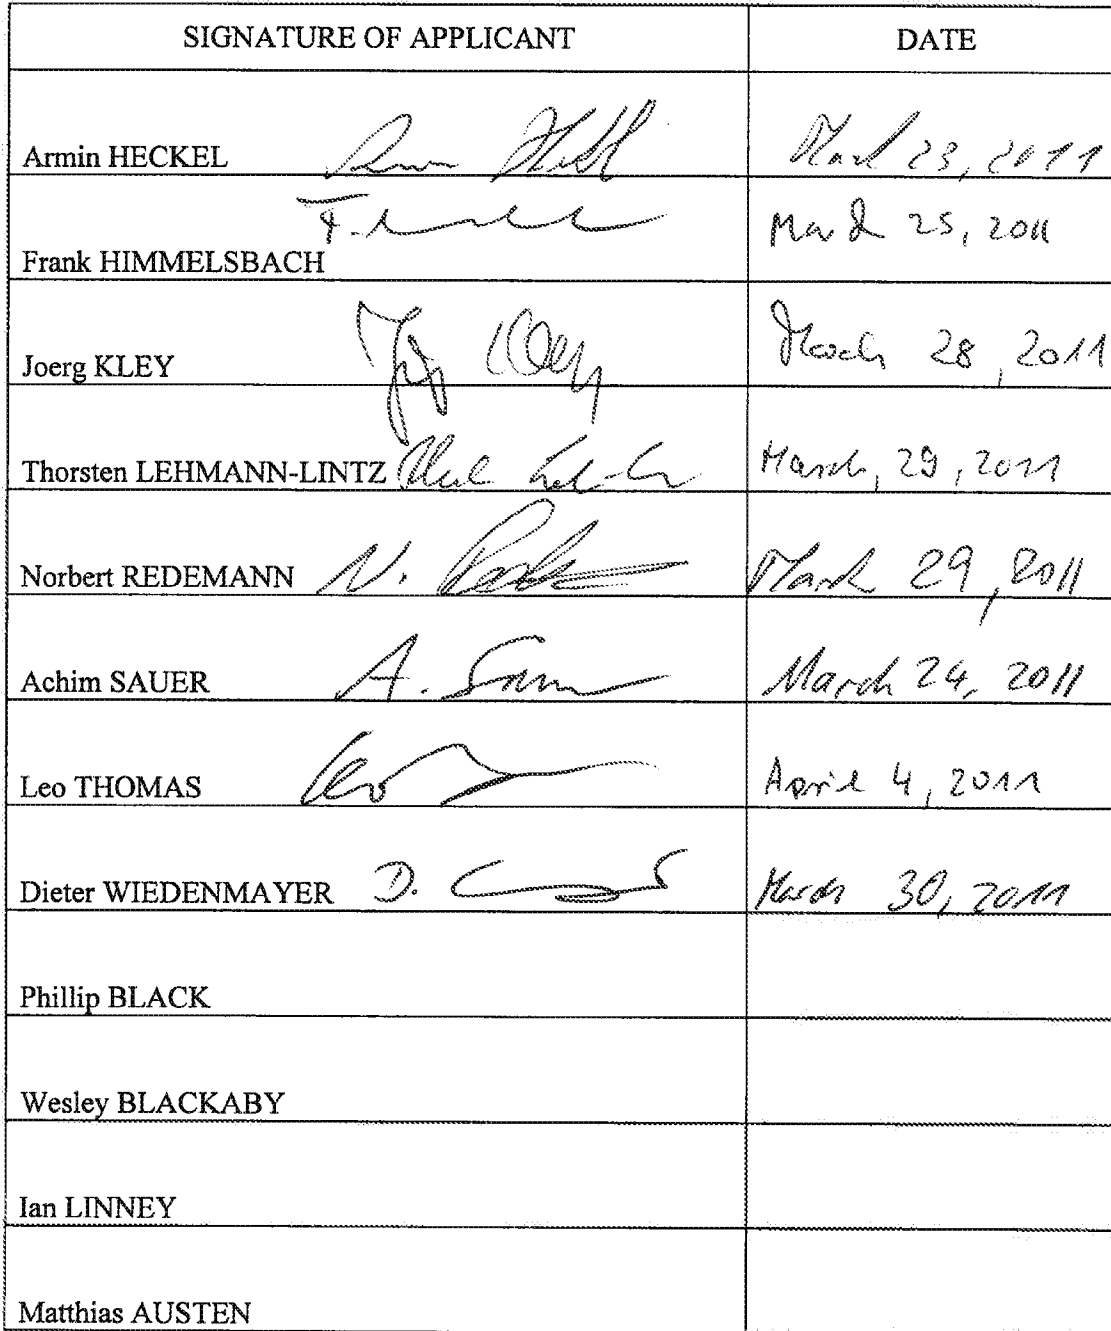 SIGNATURE OF APPLICANT DATE
Armin HECKEL March 23, 2011
Frank HIMMELSBACH March 25, 2011
Joerg KLEY Joerg Kley March 28, 2011
Thorsten LEHMANN-LINTZ March, 29, 2011
Norbert REDEMANN N. March 29, 2011
Achim SAUER A. Sauer March 24, 2011
Leo THOMAS Leo April 4, 2011
Dieter WIEDENMAYER D. March 30, 2011
Phillip BLACK
Wesley BLACKABY
Ian LINNEY
Matthias AUSTEN